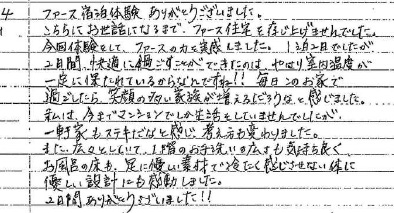 4
ファース宿泊体験ありがとうございました。
こちらにお世話になるまで、ファース住宅を存じ上げませんでした。
今回体験をして、ファースの力を実感しました。1泊2日でしたが
2日間、快適に過ごすことができたのは、やはり室内温度が
一定に保たれているからなんですね!! 毎日このお家で
過ごしたら、笑顔の多い家族が増えるだろうなと感じました。
私は、今までマンションでしか生活をしていませんでしたが、
一軒家もステキだなと感じ考え方も変わりました。
また、広々としていて、1階のお手洗いの広さも気持ち良く
お風呂の床も、足に優しい素材で冷たく感じさせない体に
優しい設計にも感動しました。
2日間ありがとうございました!!